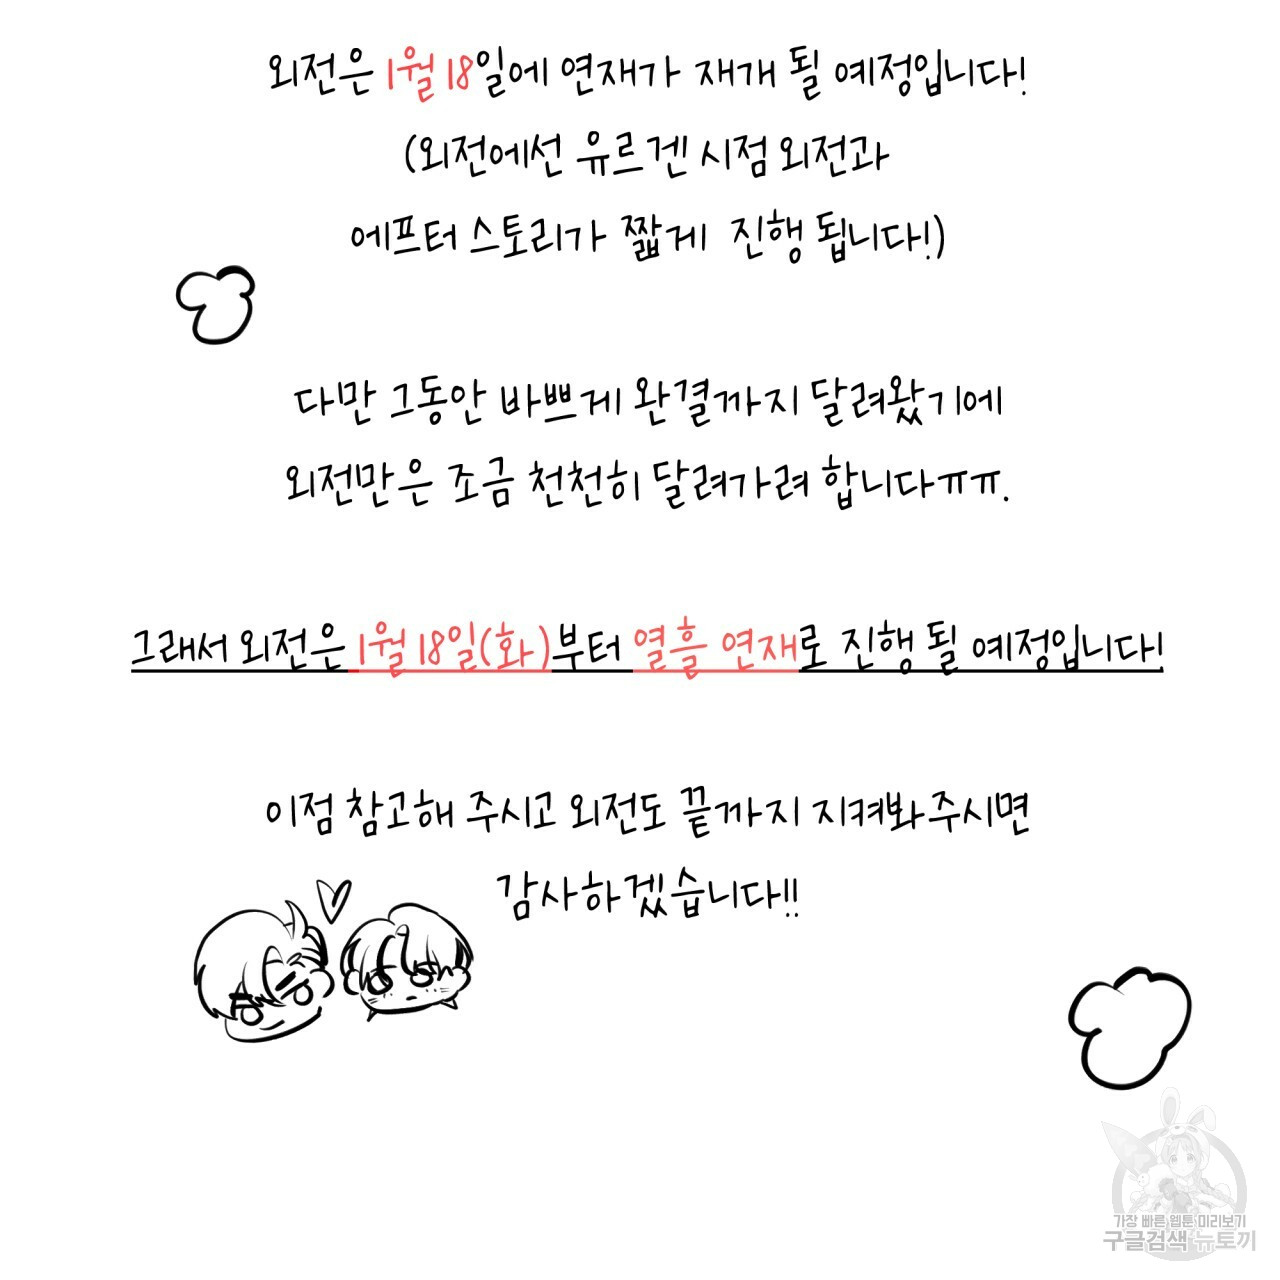 외전은 1월 18일에 연재가 재개 될 예정입니다!
(외전에선 유르겐 시점 외전과
에프터 스토리가 짧게 진행 됩니다!)
다만 그동안 바쁘게 완결까지 달려왔기에
외전만은 조금 천천히 달려가려 합니다ㅠㅠ.
그래서 외전은 1월 18일(화)부터 열흘 연재로 진행 될 예정입니다!
이점 참고해 주시고 외전도 끝까지 지켜봐주시면
감사하겠습니다!!
가장 빠른 웹툰 미리보기
구글검색 뉴토끼